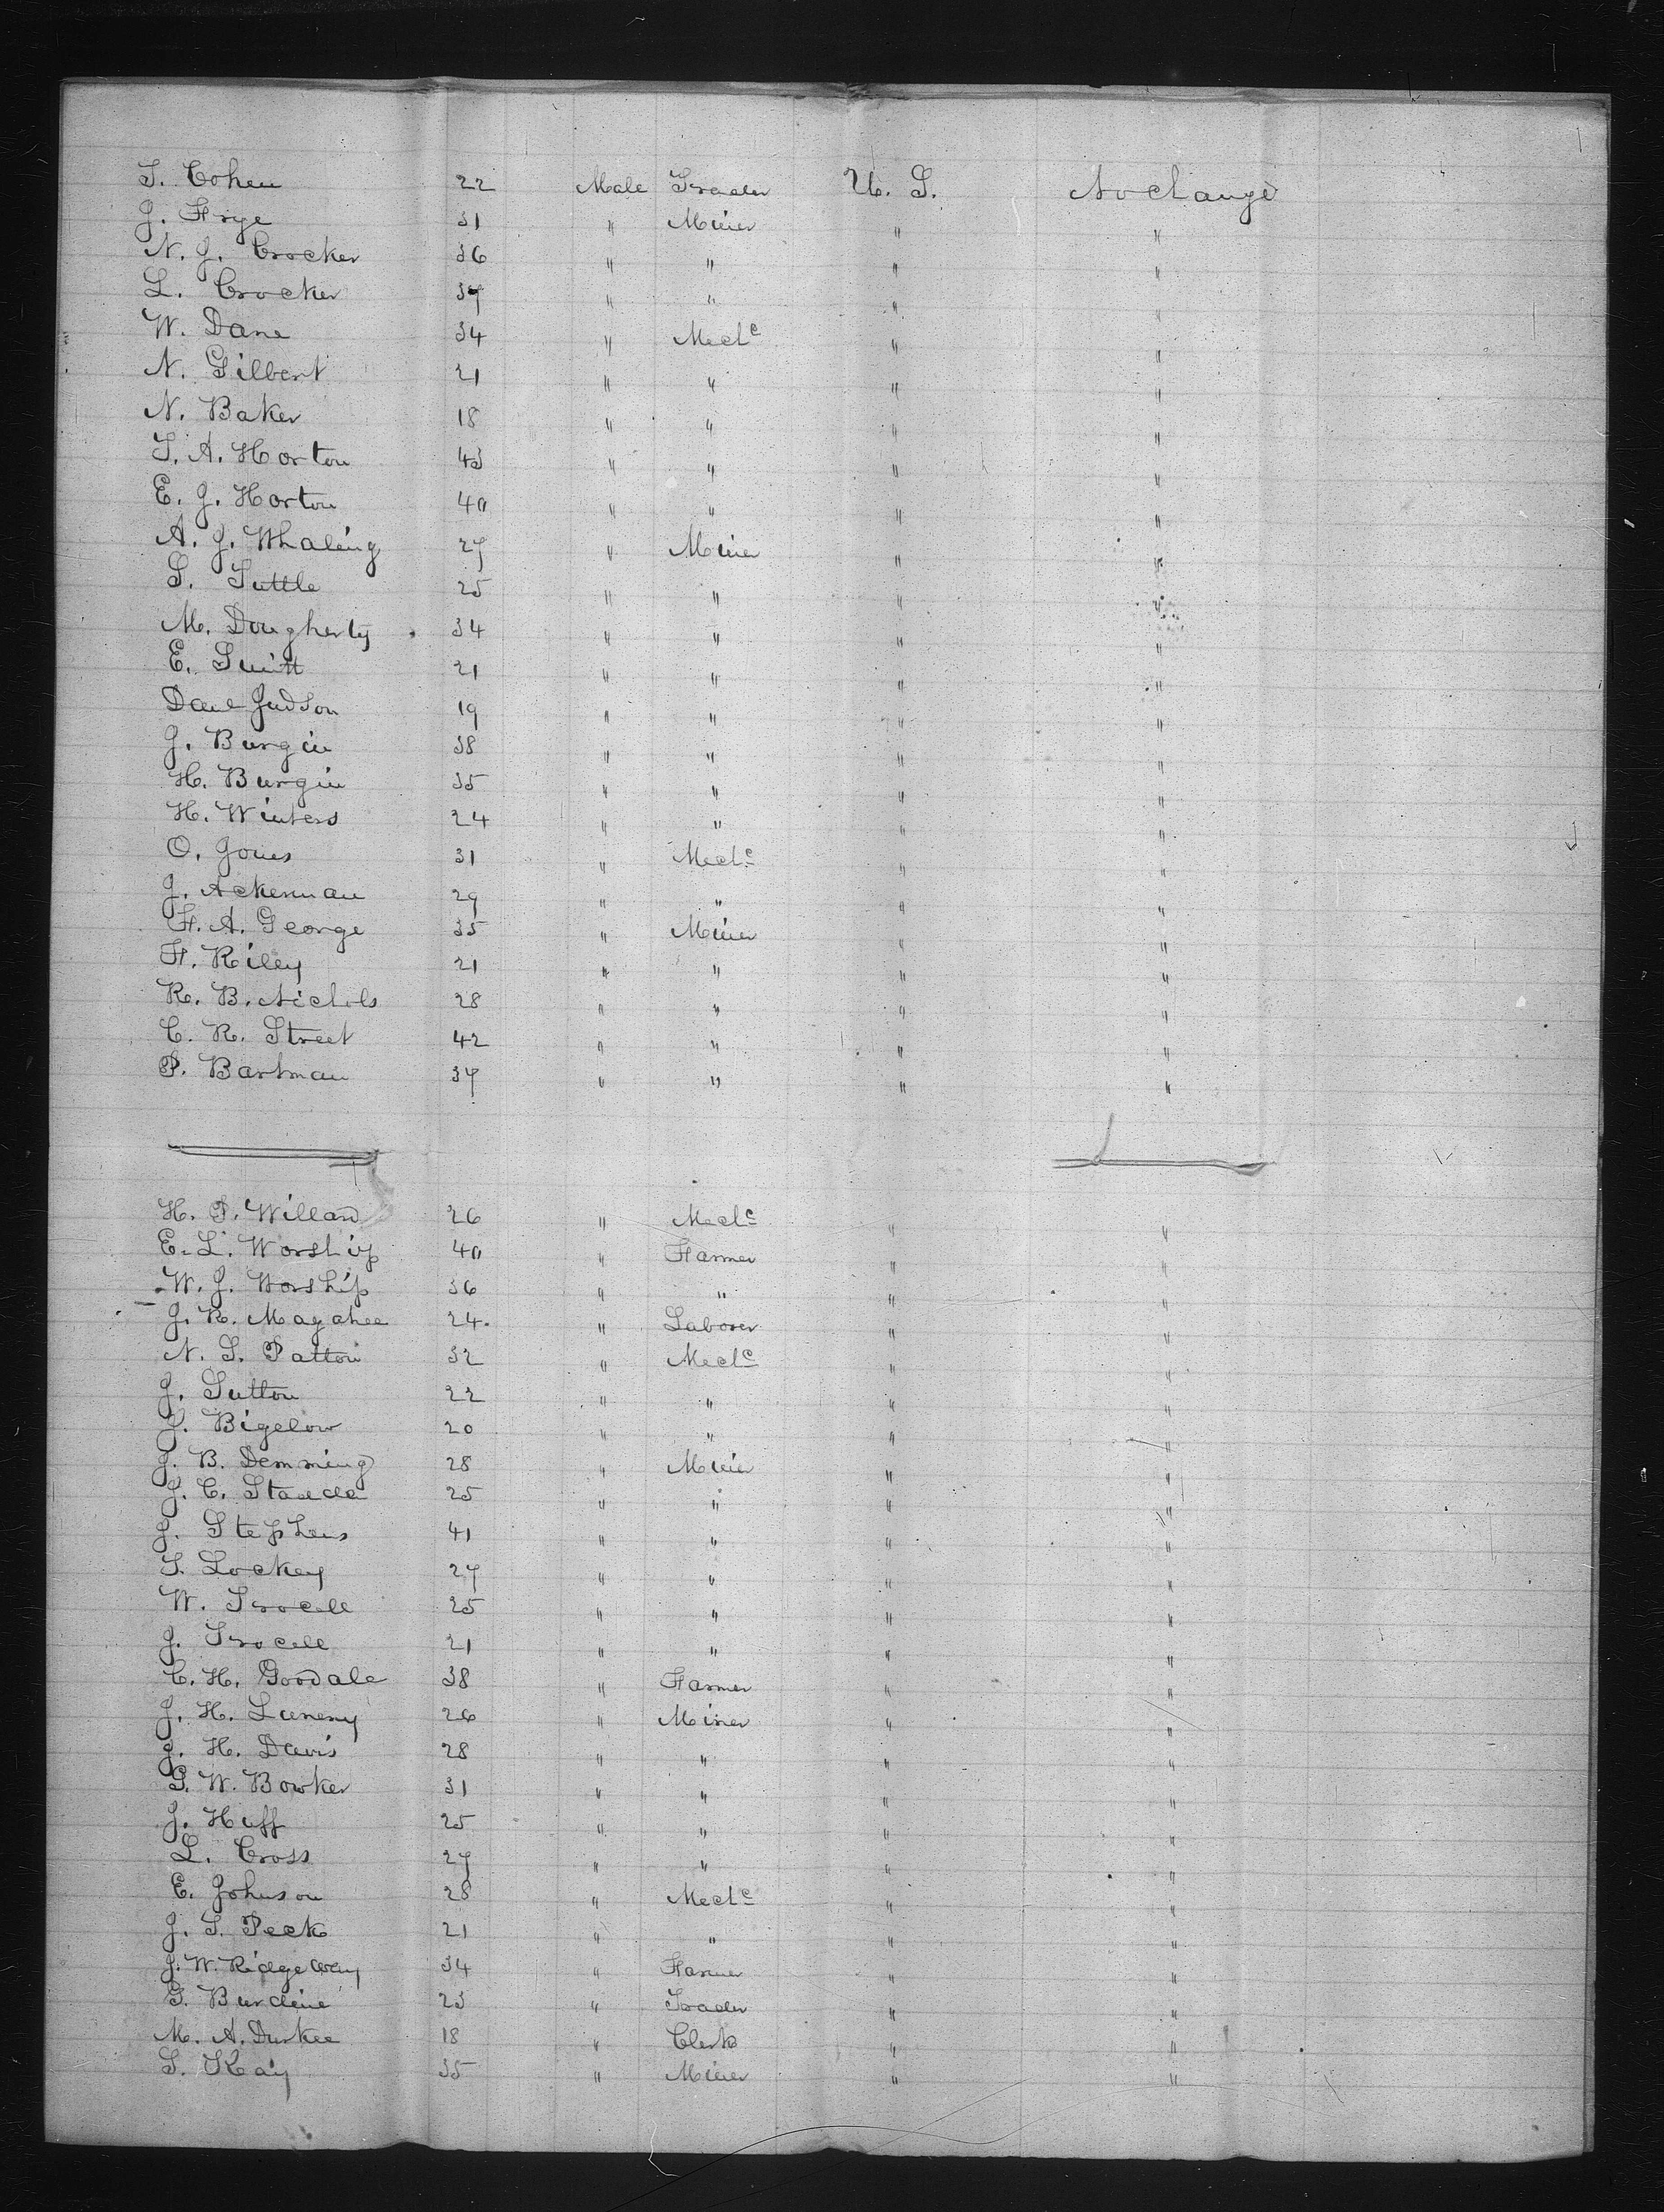 S. Cohen 22 Male Trader U. S. No change
J. Frye 31 " Miner " "
N. J. Crocker 36 " " " "
L. Crocker 37 " " " "
W. Dane 34 " Mechc " "
N. Gilbert 21 " " " "
N. Baker 18 " " " "
S. A. Horton 43 " " " "
E. J. Horton 40 " " " "
A. J. Whaling 27 " Miner " "
S. Tuttle 25 " " " "
M. Dougherty 34 " " " "
E. 21 " " " "
Dane Judson 19 " " " "
J. Burgin 38 " " " "
H. Burgin 35 " " " "
H. Winters 24 " " " "
O. Jones 31 " Mechc " "
J. Ackerman 29 " " " "
F. A. George 35 " Miner " "
F. Riley 21 " " " "
R. B. Nichols 28 " " " "
C. R. Street 42 " " " "
P. Bartman 37 " " " "
H. P. Willard 26 " Mechc " "
E. L. Worship 40 " Farmer " "
W. J. Worship 36 " " " "
J. R. Magahee 24 " Laborer " "
N. S. Patton 32 " Mechc " "
J. Sutton 22 " " " "
J. Bigelow 20 " " " "
J. B. Demming 28 " Miner " "
J. C. 25 " " " "
J. Stephens 41 " " " "
S. Lockey 27 " " " "
W. Trocell 25 " " " "
J. Trocell 21 " " " "
C. H. Goodale 38 " Farmer " "
J. H. 26 " Miner " "
J. H. Davis 28 " " " "
G. W. Bowker 31 " " " "
J. Huff 25 " " " "
L. Cross 27 " " " "
E. Johnson 28 " Mechc " "
J. S. Peck 21 " " " "
J. W. Ridgeway 34 " Farmer " "
G. Burdine 23 " Trader " "
M. A. Durkee 18 " Clerk " "
S. Kay 35 " Miner " "